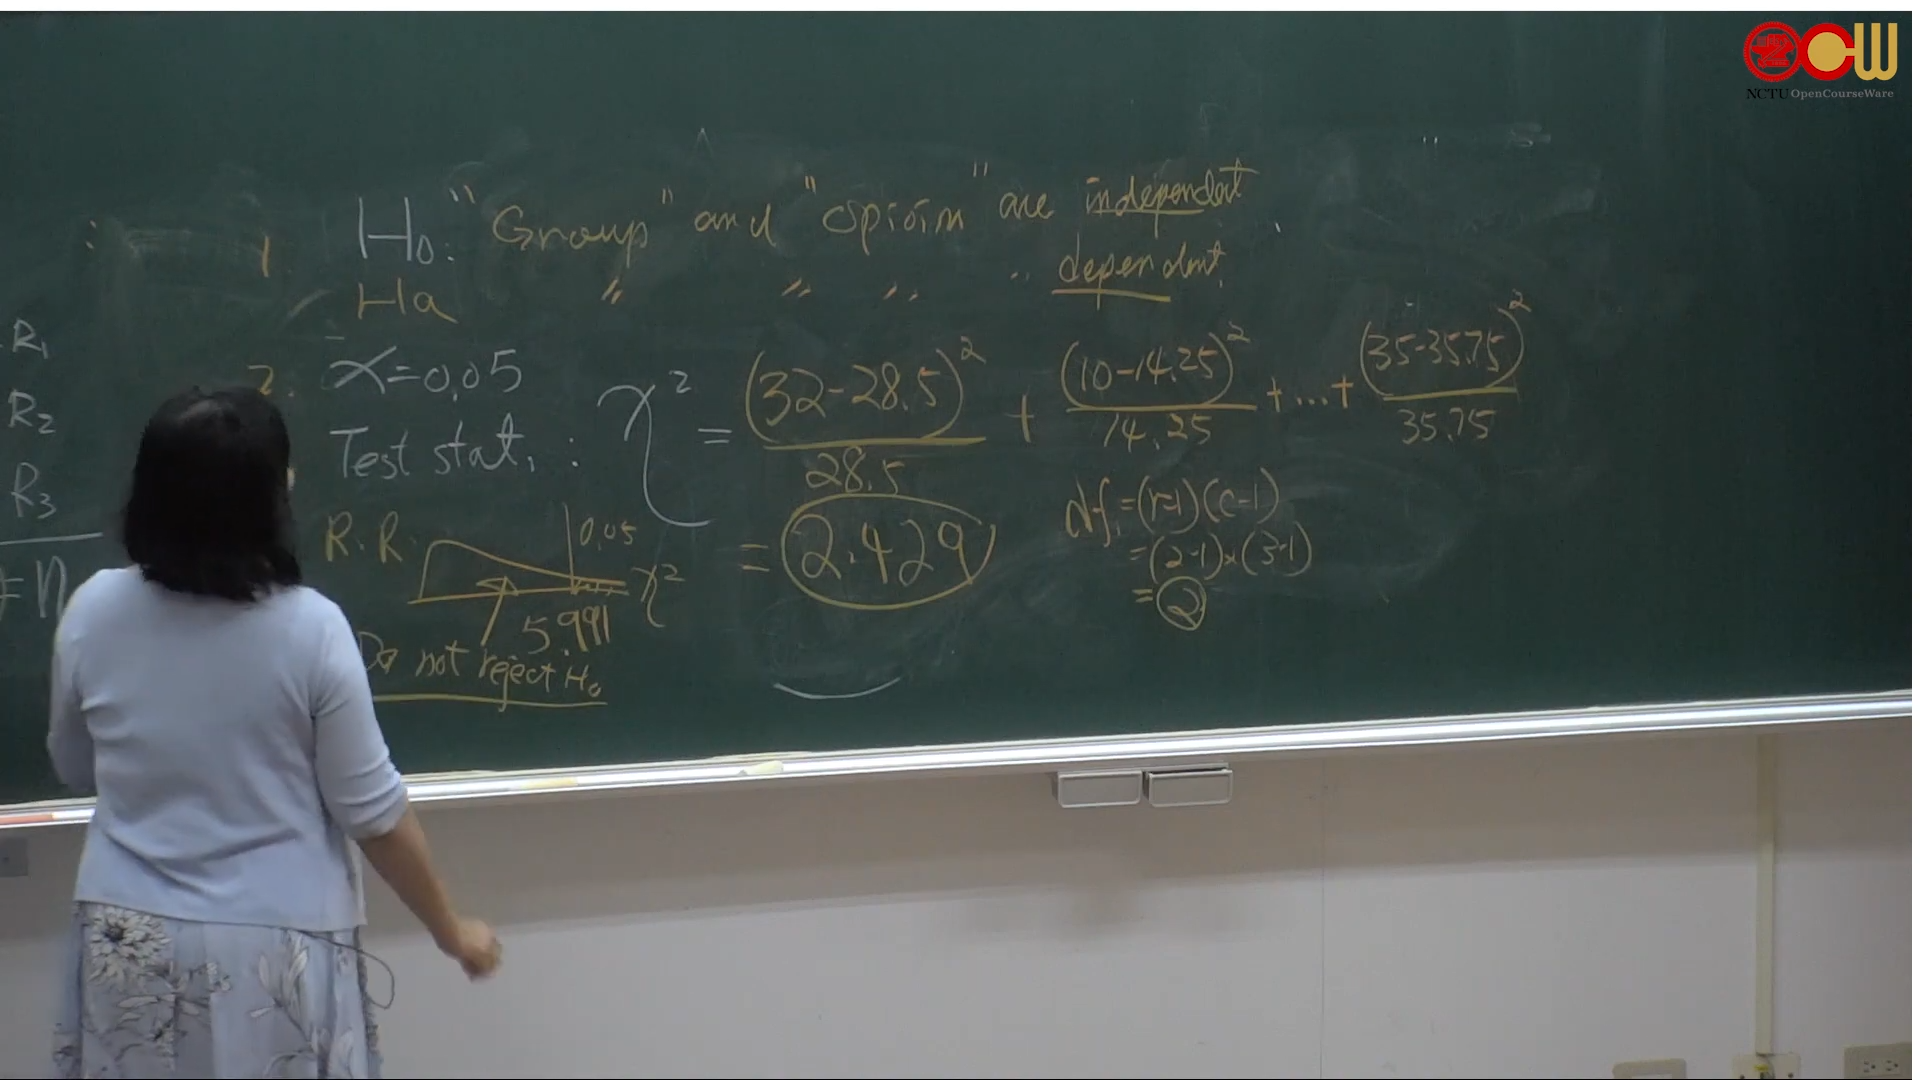 NCTU OpenCourseWare
:
1 H₀: "Group" and "Opioin" are independent
Ha 〃 〃 〃 〃 dependent.
R₁
R₂
R₃
= n
2. α=0.05
Test stat. : χ² = (32-28.5)²/28.5 + (10-14.25)²/14.25 +...+ (35-35.75)²/35.75
= 2.429
df. = (r-1)(c-1)
= (2-1)×(3-1)
= 2
R.R. 0.05 χ²
5.991
Do not reject H₀